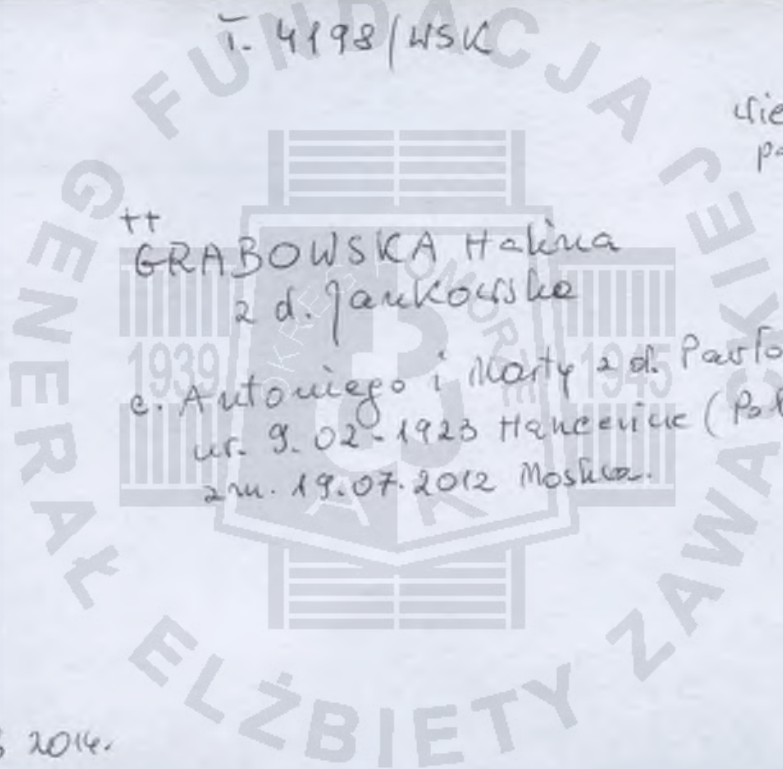 T. 4198/WSK
++
GRABOWSKA Halina
z d. Jankowska
c. Antoniego i Marty z d. Pawło
ur. 9.02-1923 Hancewicze (Pol
zm. 19.07.2012 Moskwa.
2014.
FUNDACJA
GENERAŁ ELŻBIETY ZAWA
1939
1945
OKRĘG POMORZE
AK